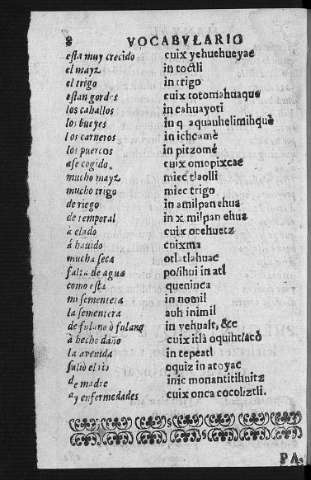 8 VOCABVLARIO
esta muy crecido cuix yehuehueyac
el mayz in toctli
el trigo in trigo
estan gordos cuix totomahuaque
los caballos in cahuayoti
los bueyes in q aquanhelimihque
los carneros in ichcamè
los puercos in pitzomè
ase cogido cuix omopixcac
mucho mayz miec tlaolli
mucho trigo miec trigo
de riego in amilpan ehua
de temporal in x milpan ehua
à elado cuix ocehuetz
à hauido cuixma
mucha seca otlatlahuac
falta de agua polihui in atl
como esta queninca
mi sementera in nomil
la sementera auh inimil
de fulano ò fulana in yehuatl, &c
à hecho daño cuix itlà oquihtlacò
la avenida in tepeatl
salio el rio oquiz in atoyac
de madre inic monantitihuitz
ay enfermedades cuix onca cocoliztli.
PA